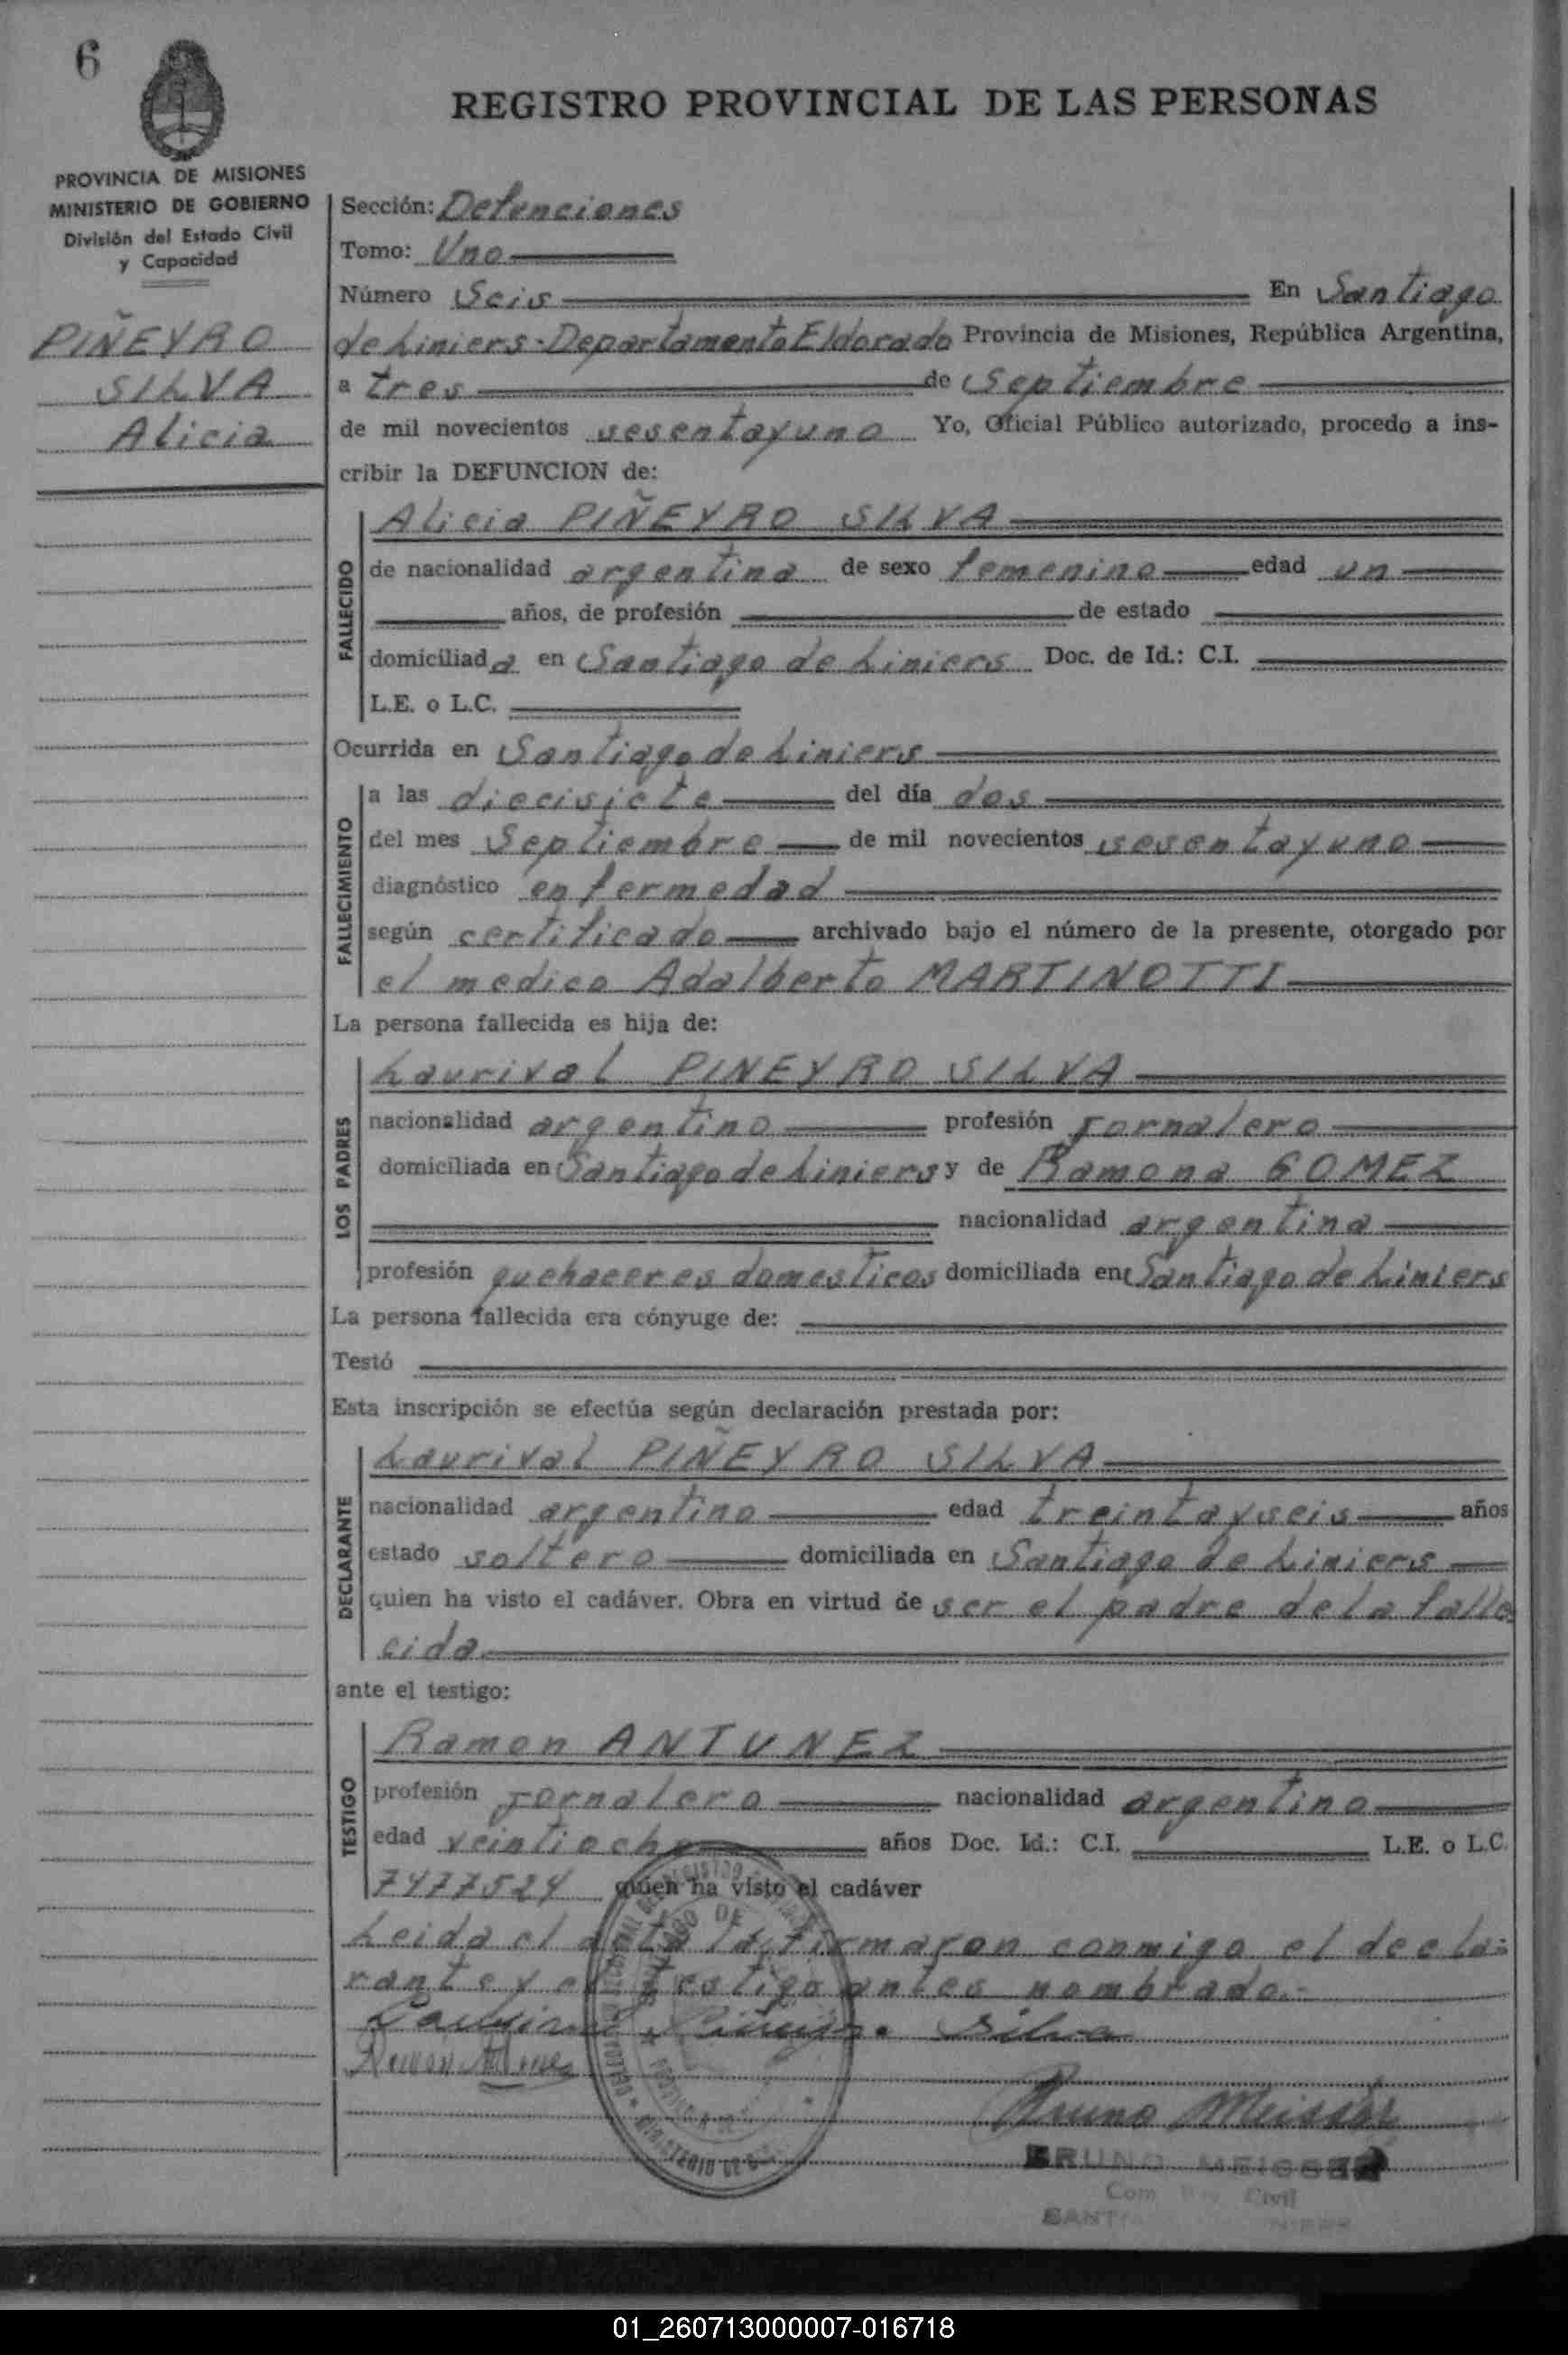 6
REGISTRO PROVINCIAL DE LAS PERSONAS
PROVINCIA DE MISIONES
MINISTERIO DE GOBIERNO
División del Estado Civil
y Capacidad
PIÑEYRO
SILVA
Alicia
Sección: Defunciones
Tomo: Uno
Número Seis En Santiago
de Liniers-Departamento Eldorado Provincia de Misiones, República Argentina,
a tres de Septiembre
de mil novecientos sesentayuno Yo, Oficial Público autorizado, procedo a ins-
cribir la DEFUNCION de:
FALLECIDO
Alicia PIÑEYRO SILVA
de nacionalidad argentina de sexo femenino edad un
años, de profesión de estado
domiciliada en Santiago de Liniers Doc. de Id.: C.I.
L.E. o L.C.
Ocurrida en Santiago de Liniers
FALLECIMIENTO
a las diecisiete del día dos
del mes Septiembre de mil novecientos sesentayuno
diagnóstico enfermedad
según certificado archivado bajo el número de la presente, otorgado por
el medico Adalberto MARTINOTTI
La persona fallecida es hija de:
LOS PADRES
Laurival PINEYRO SILVA
nacionalidad argentino profesión jornalero
domiciliada en Santiago de Liniers y de Ramona GOMEZ
nacionalidad argentina
profesión quehaceres domesticos domiciliada en Santiago de Liniers
La persona fallecida era cónyuge de:
Testó
Esta inscripción se efectúa según declaración prestada por:
DECLARANTE
Laurival PIÑEYRO SILVA
nacionalidad argentino edad treintayseis años
estado soltero domiciliada en Santiago de Liniers
quien ha visto el cadáver. Obra en virtud de ser el padre de la falle
cida
ante el testigo:
TESTIGO
Ramon ANTUNEZ
profesión jornalero nacionalidad argentino
edad veintiocho años Doc. Id.: C.I. L.E. o L.C.
7477524 quien ha visto el cadáver
Leida el acta la firmaron conmigo el decla-
rante y el testigo antes nombrado.-
Laurival Piñeyro Silva
Ramon
Bruno Meisser
BRUNO MEISSER
Civil
01_260713000007-016718